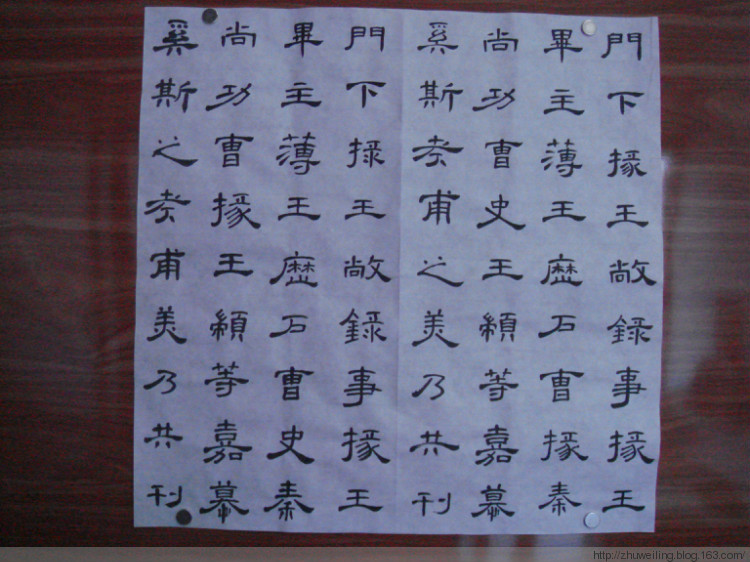 門下掾王敞錄事掾王
畢主薄王歷戶曹掾秦
尚功曹史王顓等嘉慕
奚斯考甫之美乃共刊
門下掾王敞錄事掾王
畢主薄王歷戶曹史秦
尚功曹掾王顓等嘉慕
奚斯之考甫美乃共刊
http://zhuweiling.blog.163.com/